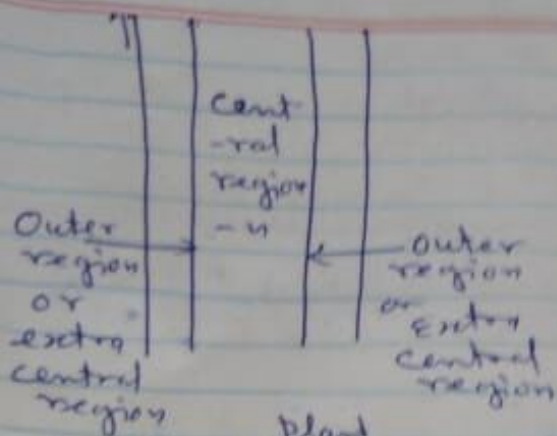 Cent
-ral
region
-n
Outer
region
or
extra
central
region
outer
region
or
Extra
central
region
Plant